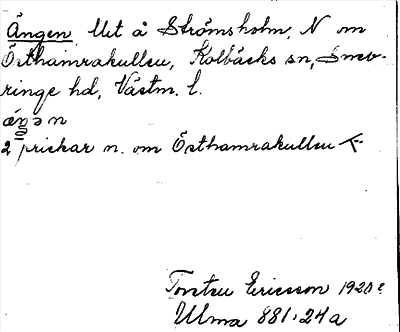 Ängen Utt å Strömsholm, N om
Östhamrakullen, Kolbäcks sn, Snev-
ringe hd, Västm. l.
2 prickar n. om Östhamrakullen
Torsten Ericsson 1920
Ulma 881:24a